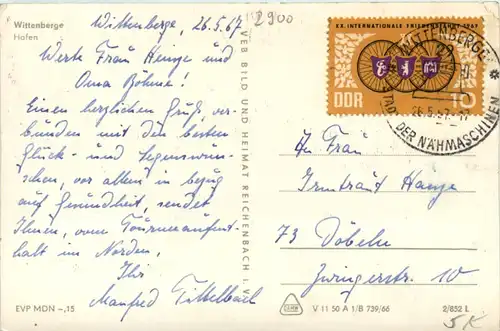 Wittenberge
Hafen
Wittenberge, 26.5.67
2900
Werte Frau Heinze und
Oma Böhme!
Einen herzlichen Gruß, ver-
bunden mit den besten
Glück- und Segenswün-
schen, vor allem in bezug
auf Gesundheit, sendet
Ihnen, vom Tourneeaufent-
halt im Norden,
Ihr
Manfred Tittelbach
EVP MDN -,15
VEB BILD UND HEIMAT REICHENBACH i. V.
XX. INTERNATIONALE FRIEDENSFAHRT 1967
DDR 10
WITTENBERGE
26.5.67-17
STADT DER NÄHMASCHINEN
An Frau
Irmtraut
73 Döbeln
Zwingerstr. 10
V 11 50 A 1/B 739/66
2/852 L
5K